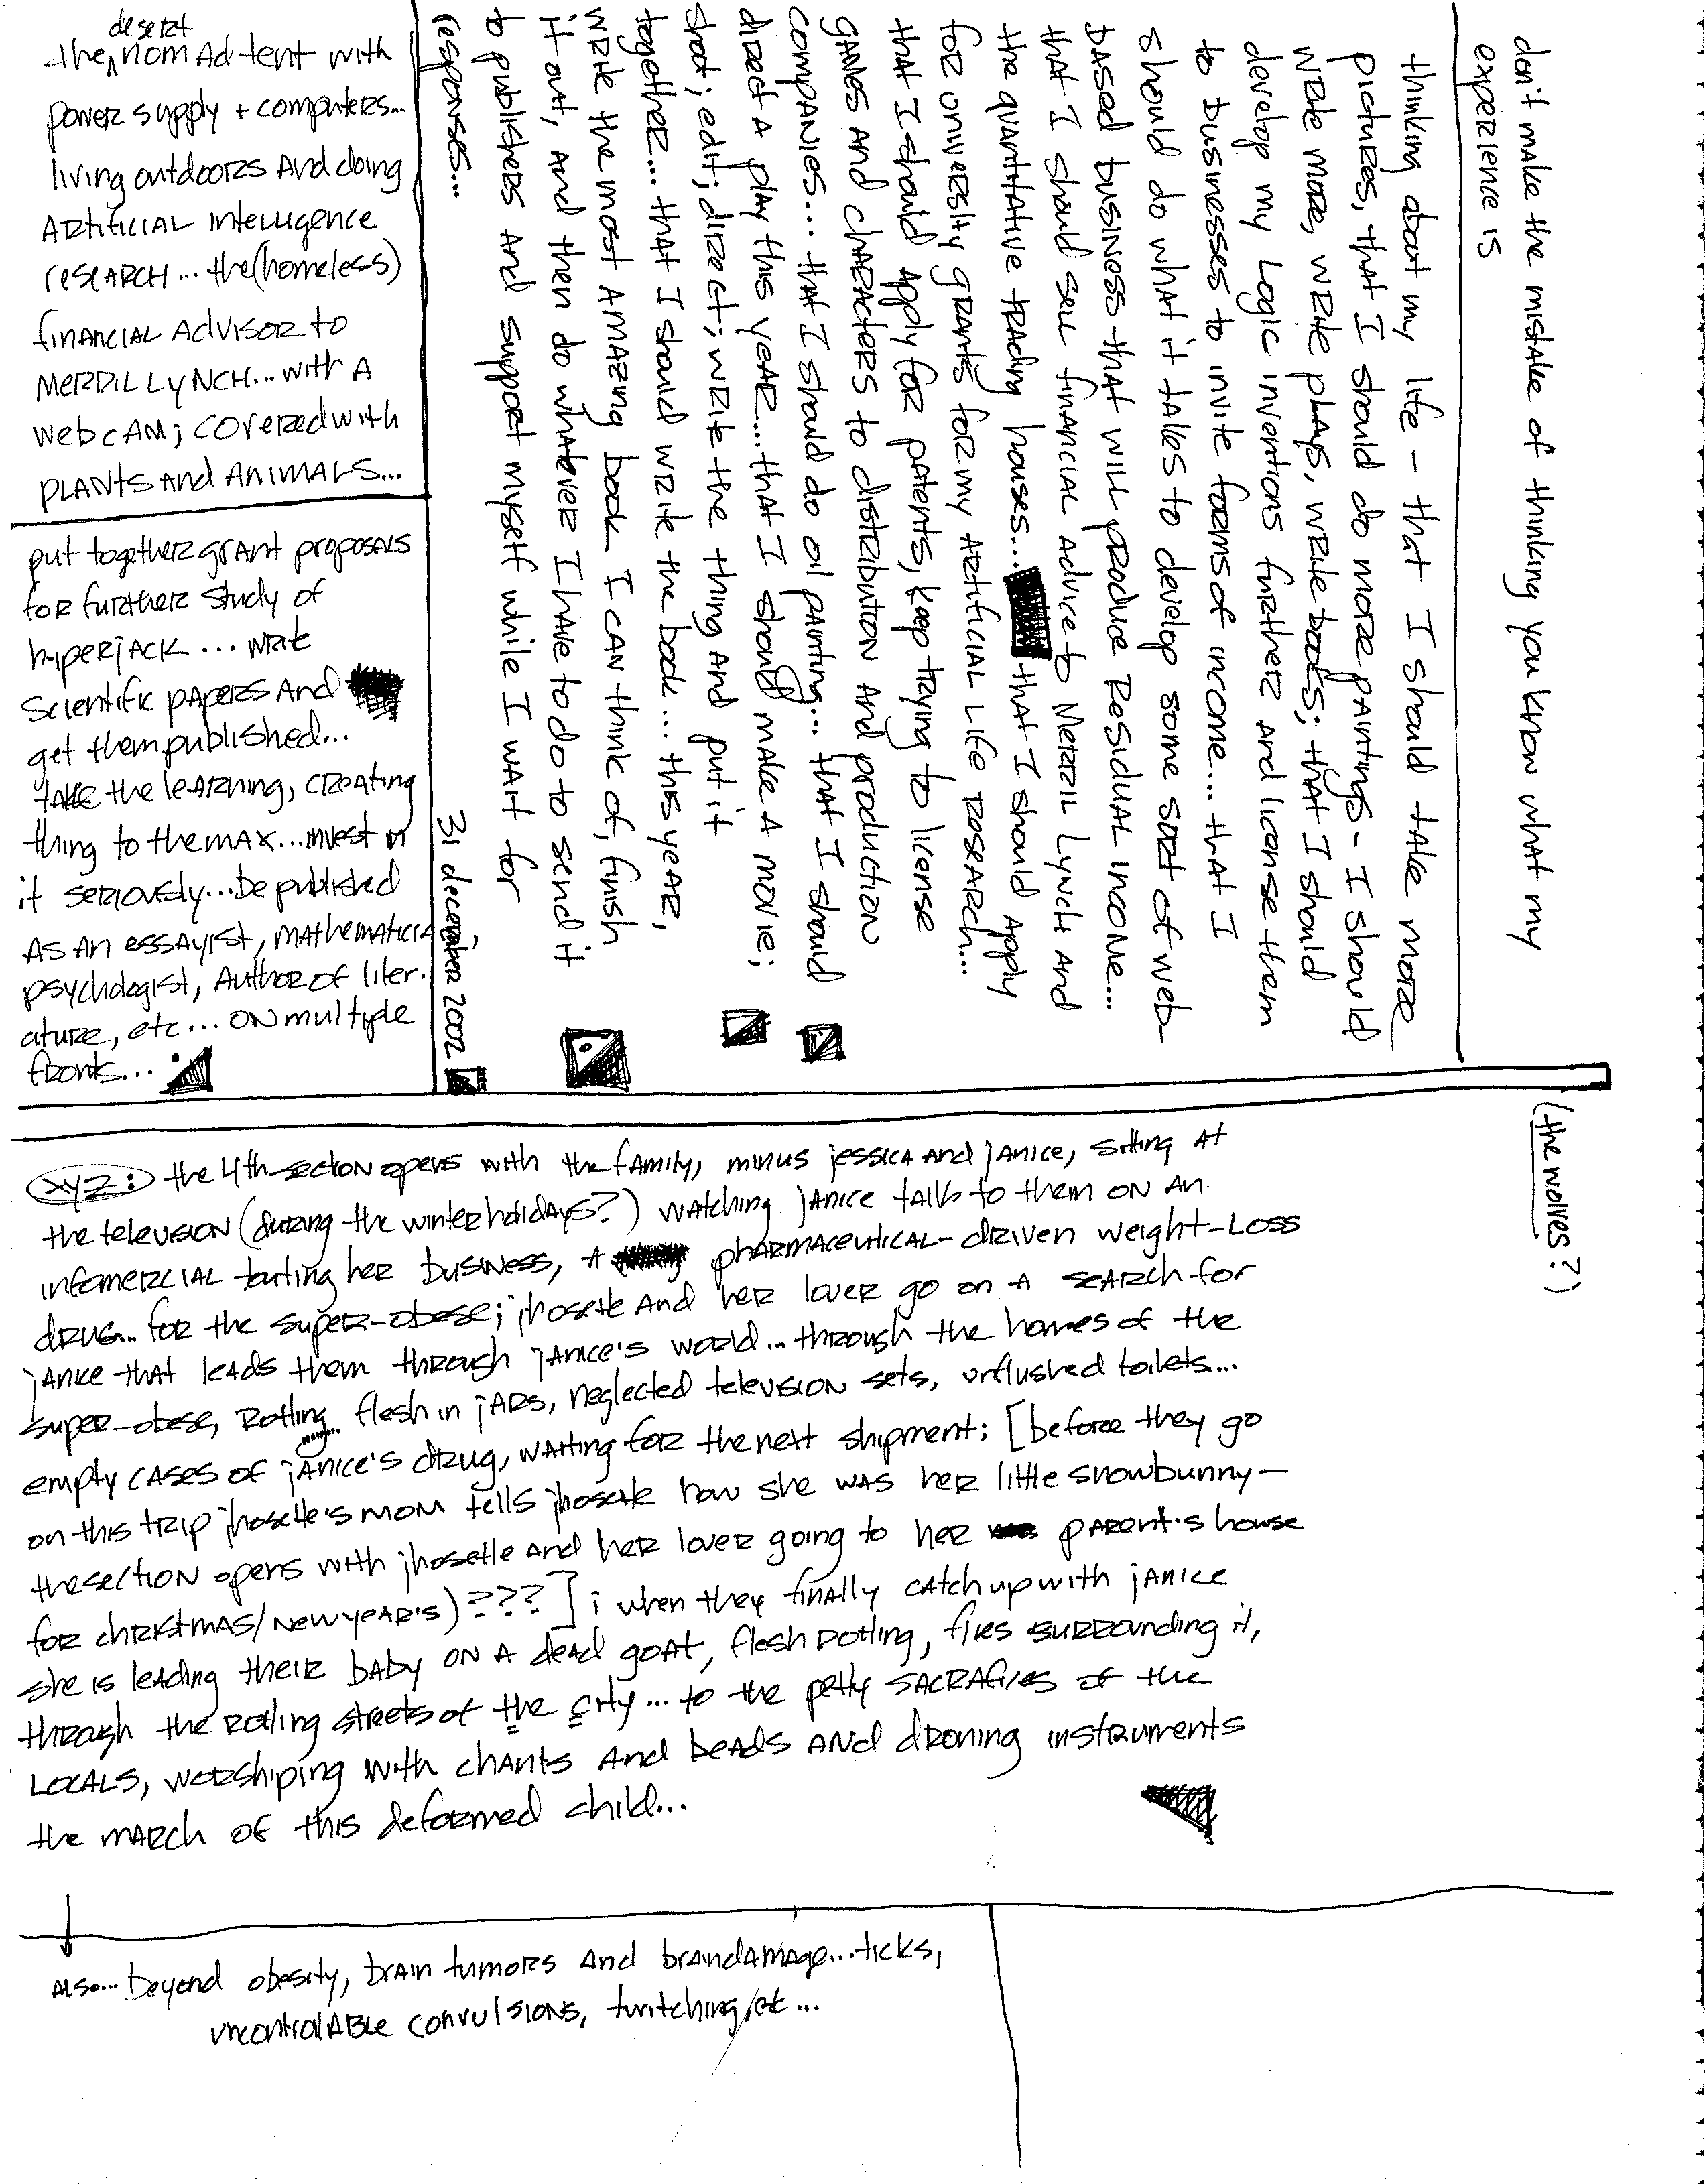 the desert nomad tent with
power supply + computers...
living outdoors and doing
artificial intelligence
research... the (homeless)
financial advisor to
merril lynch... with a
webcam; covered with
plants and animals...
put together grant proposals
for further study of
hyperjack... write
scientific papers and
get them published...
take the learning, creating
thing to the max... invest in
it seriously... be published
as an essayist, mathematician,
psychologist, author of liter-
ature, etc... on multiple
fronts...
don't make the mistake of thinking you know what my
experience is
thinking about my life - that I should take more
pictures, that I should do more paintings - I should
write more, write plays, write books; that I should
develop my logic inventions further and license them
to businesses to invite forms of income... that I
should do what it takes to develop some sort of web-
based business that will produce residual income...
that I should sell financial advice to Merril Lynch and
the quantitative trading houses... that I should apply
for university grants for my artificial life research...
that I should apply for patents, keep trying to license
games and characters to distribution and production
companies... that I should do oil painting... that I should
direct a play this year... that I should make a movie;
shoot; edit; direct; write the thing and put it
together... that I should write the book... this year,
write the most amazing book I can think of, finish
it out, and then do whatever I have to do to send it
to publishers and support myself while I wait for
responses...
31 december 2002
(the wolves?)
xyz: the 4th section opens with the family, minus jessica and janice, sitting at
the television (during the winter holidays?) watching janice talk to them on an
infomercial touting her business, a pharmaceutical-driven weight-loss
drug... for the super-obese; jhosette and her lover go on a search for
janice that leads them through janice's world... through the homes of the
super-obese, rotting flesh in jars, neglected television sets, unflushed toilets...
empty cases of janice's drug, waiting for the next shipment; [before they go
on this trip jhosette's mom tells jhosette how she was her little snowbunny—
the section opens with jhosette and her lover going to her parent's house
for christmas/new year's)???]; when they finally catch up with janice
she is leading their baby on a dead goat, flesh rotting, flies surrounding it,
through the rolling streets of the city... to the petty sacrafices of the
locals, worshiping with chants and beads and droning instruments
the march of this deformed child...
also... beyond obesity, brain tumors and braindamage... ticks,
uncontrolable convulsions, twitching, etc...